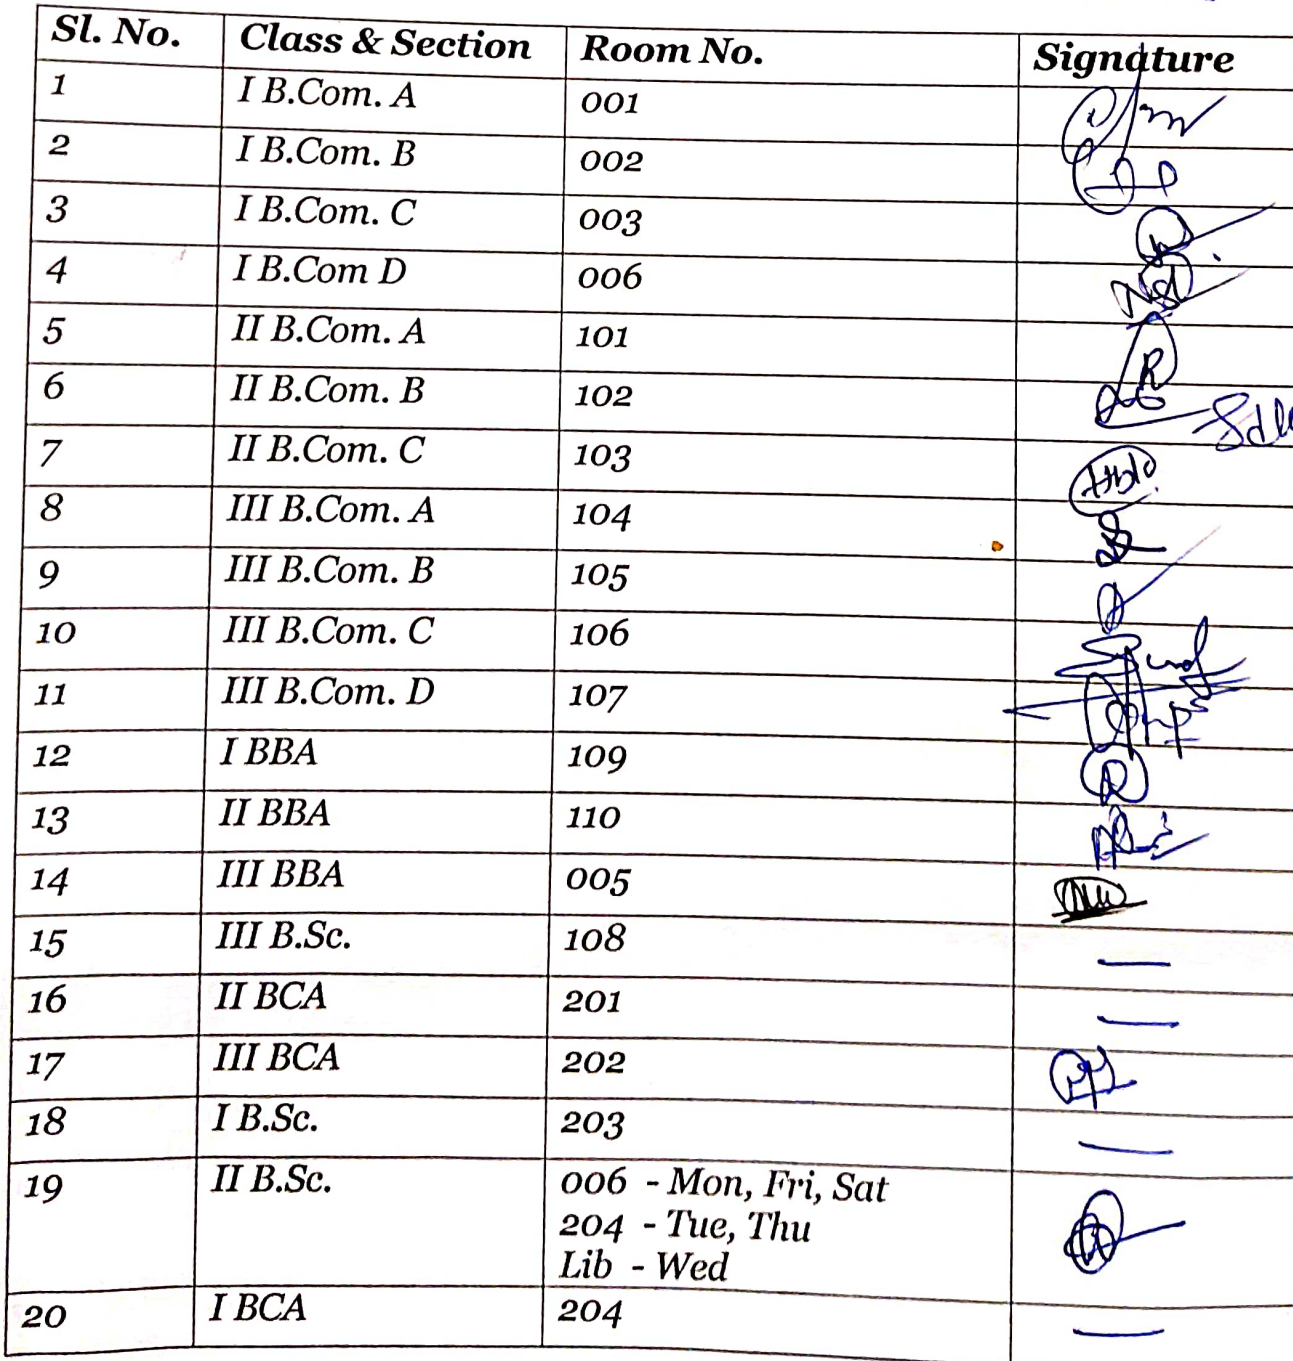 Sl. No. Class & Section Room No. Signature
1 I B.Com. A 001
2 I B.Com. B 002
3 I B.Com. C 003
4 I B.Com D 006
5 II B.Com. A 101
6 II B.Com. B 102
7 II B.Com. C 103
8 III B.Com. A 104
9 III B.Com. B 105
10 III B.Com. C 106
11 III B.Com. D 107
12 I BBA 109
13 II BBA 110
14 III BBA 005
15 III B.Sc. 108 —
16 II BCA 201 —
17 III BCA 202
18 I B.Sc. 203 —
19 II B.Sc. 006 - Mon, Fri, Sat
204 - Tue, Thu
Lib - Wed
20 I BCA 204 —